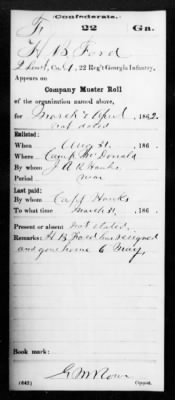 Confederate.
F 22 Ga.
H B Ford
2 Lieut, Co. A, 22 Reg't Georgia Infantry.
Appears on
Company Muster Roll
of the organization named above,
for March & April, 1862.
not dated
Enlisted:
When Aug 31, 186 .
Where Camp McDonald
By whom J A R Hanks
Period war
Last paid:
By whom Capt Hawks
To what time March 31, 186 .
Present or absent not stated
Remarks: H B Ford has resigned
and gone home 6 May
Book mark:
G M
(642) Copyist.